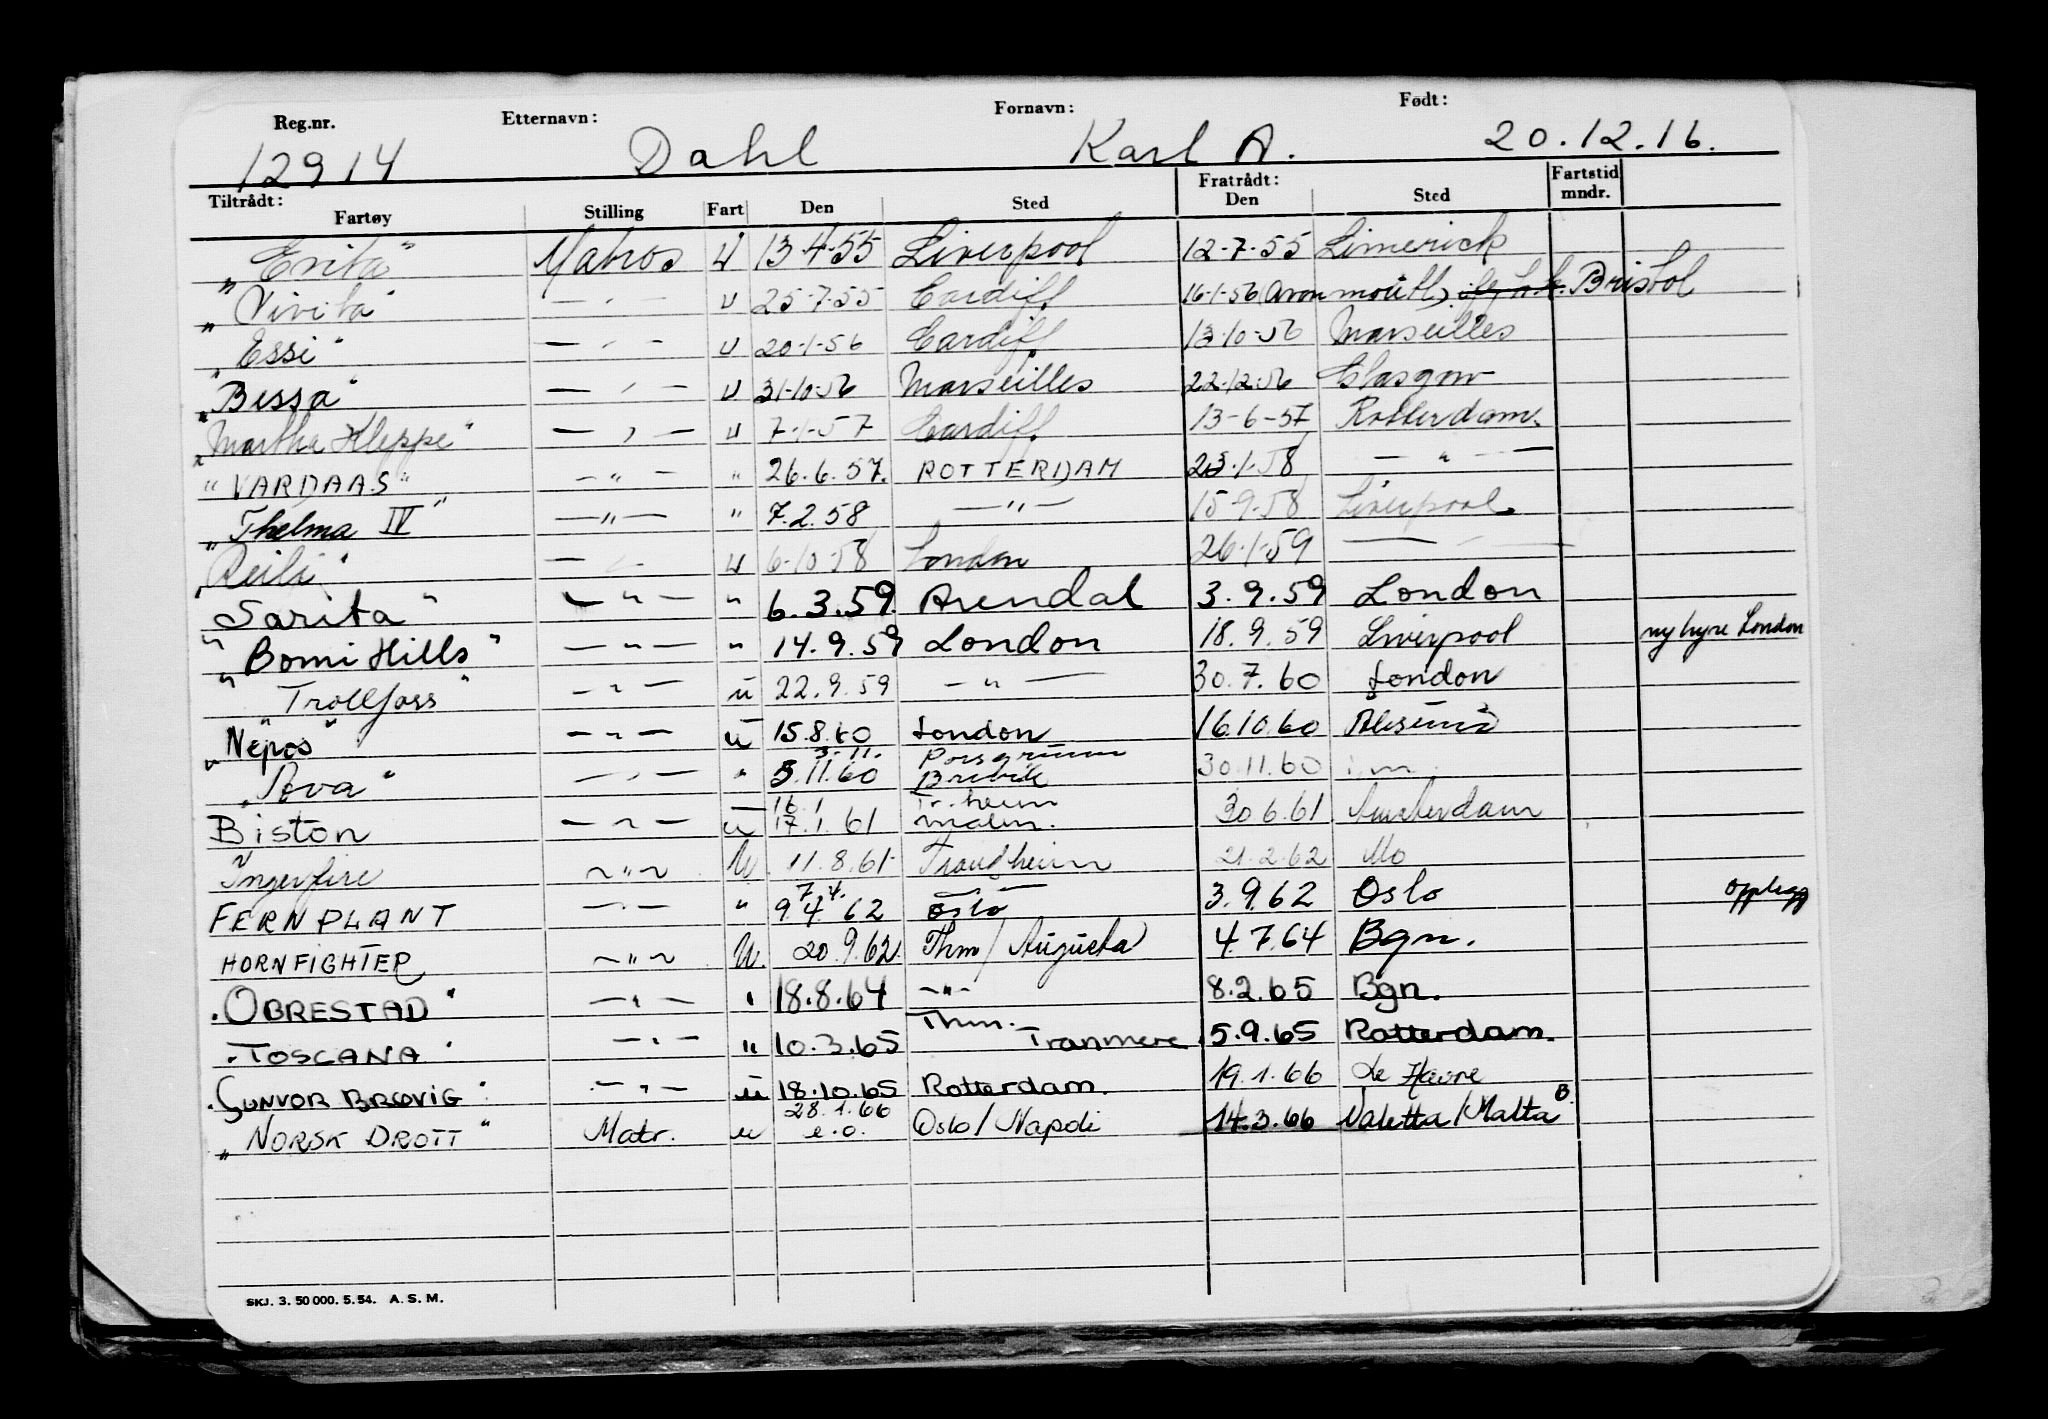 Reg.nr. Etternavn: Fornavn: Født:
12914 Dahl Karl A. 20.12.16.
Tiltrådt: Fratrådt: Fartstid
Fartøy Stilling Fart Den Sted Den Sted mndr.
"Evita" Matros U 13-4-55 Liverpool 12-7-55 Limerick
"Vivita" — " — U 25-7-55 Cardiff 16-1-56 (Avonmouth) Bristol
"Essi" — " — U 20-1-56 Cardiff 13-10-56 Marseilles
"Bessa" — " — U 31-10-56 Marseilles 22-12-56 Glasgow
"Martha Kleppe" — " — U 7-1-57 Cardiff 13-6-57 Rotterdam.
"VARDAAS" — " — " 26.6.57. ROTTERDAM 23-1-58 — " —
"Thelma IV" — " — " 7.2.58 — " — 15-9-58 Liverpool
— " — U 6-10-58 London 26-1-59 — " —
"Sarita" — " — " 6.3.59. Arendal 3.9.59 London
"Bomi Hills" — " — " 14.9.59 London 18.9.59 Liverpool ny hyre London
"Trollfoss" — " — u 22.9.59 — " — 30.7.60 London
"Nepos" — " — u 15.8.60 London 16.10.60
3.11. Porsgrunn
"Ava" — " — " 5.11.60 Brevik 30.11.60
16.1 Tr.heim
Biston — " — u 17.1.61 malm. 30.6.61 Amsterdam
Ingerfire — " — U 11.8.61- Trondheim 21.2.62 Mo
7.4.
FERNPLANT — " — " 9.4.62 Oslo 3.9.62 Oslo opplegg
HORN FIGHTER — " — U. 20.9.62. Thm/Augusta 4.7.64 Bgn.
"OBRESTAD" — " — " 18.8.64 — " — 8.2.65 Bgn.
Thm.
"TOSCANA" — " — " 10.3.65 Tranmere 15.9.65 Rotterdam.
"GUNVOR BRØVIG" — " — u 18.10.65 Rotterdam. 19.1.66 Le Havre
28.1.66
"NORSK DROTT" Matr. u e.o. Oslo/Napoli 14.3.66 Valetta/Malta B
SKJ. 3. 50 000. 5. 54. A. S. M.